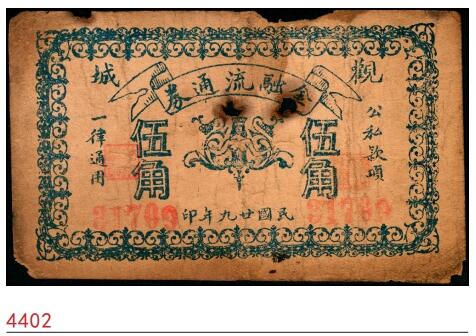 觀城
金融流通券
公私款項
伍角
伍角
一律通用
31799
31799
民國廿九年印
4402